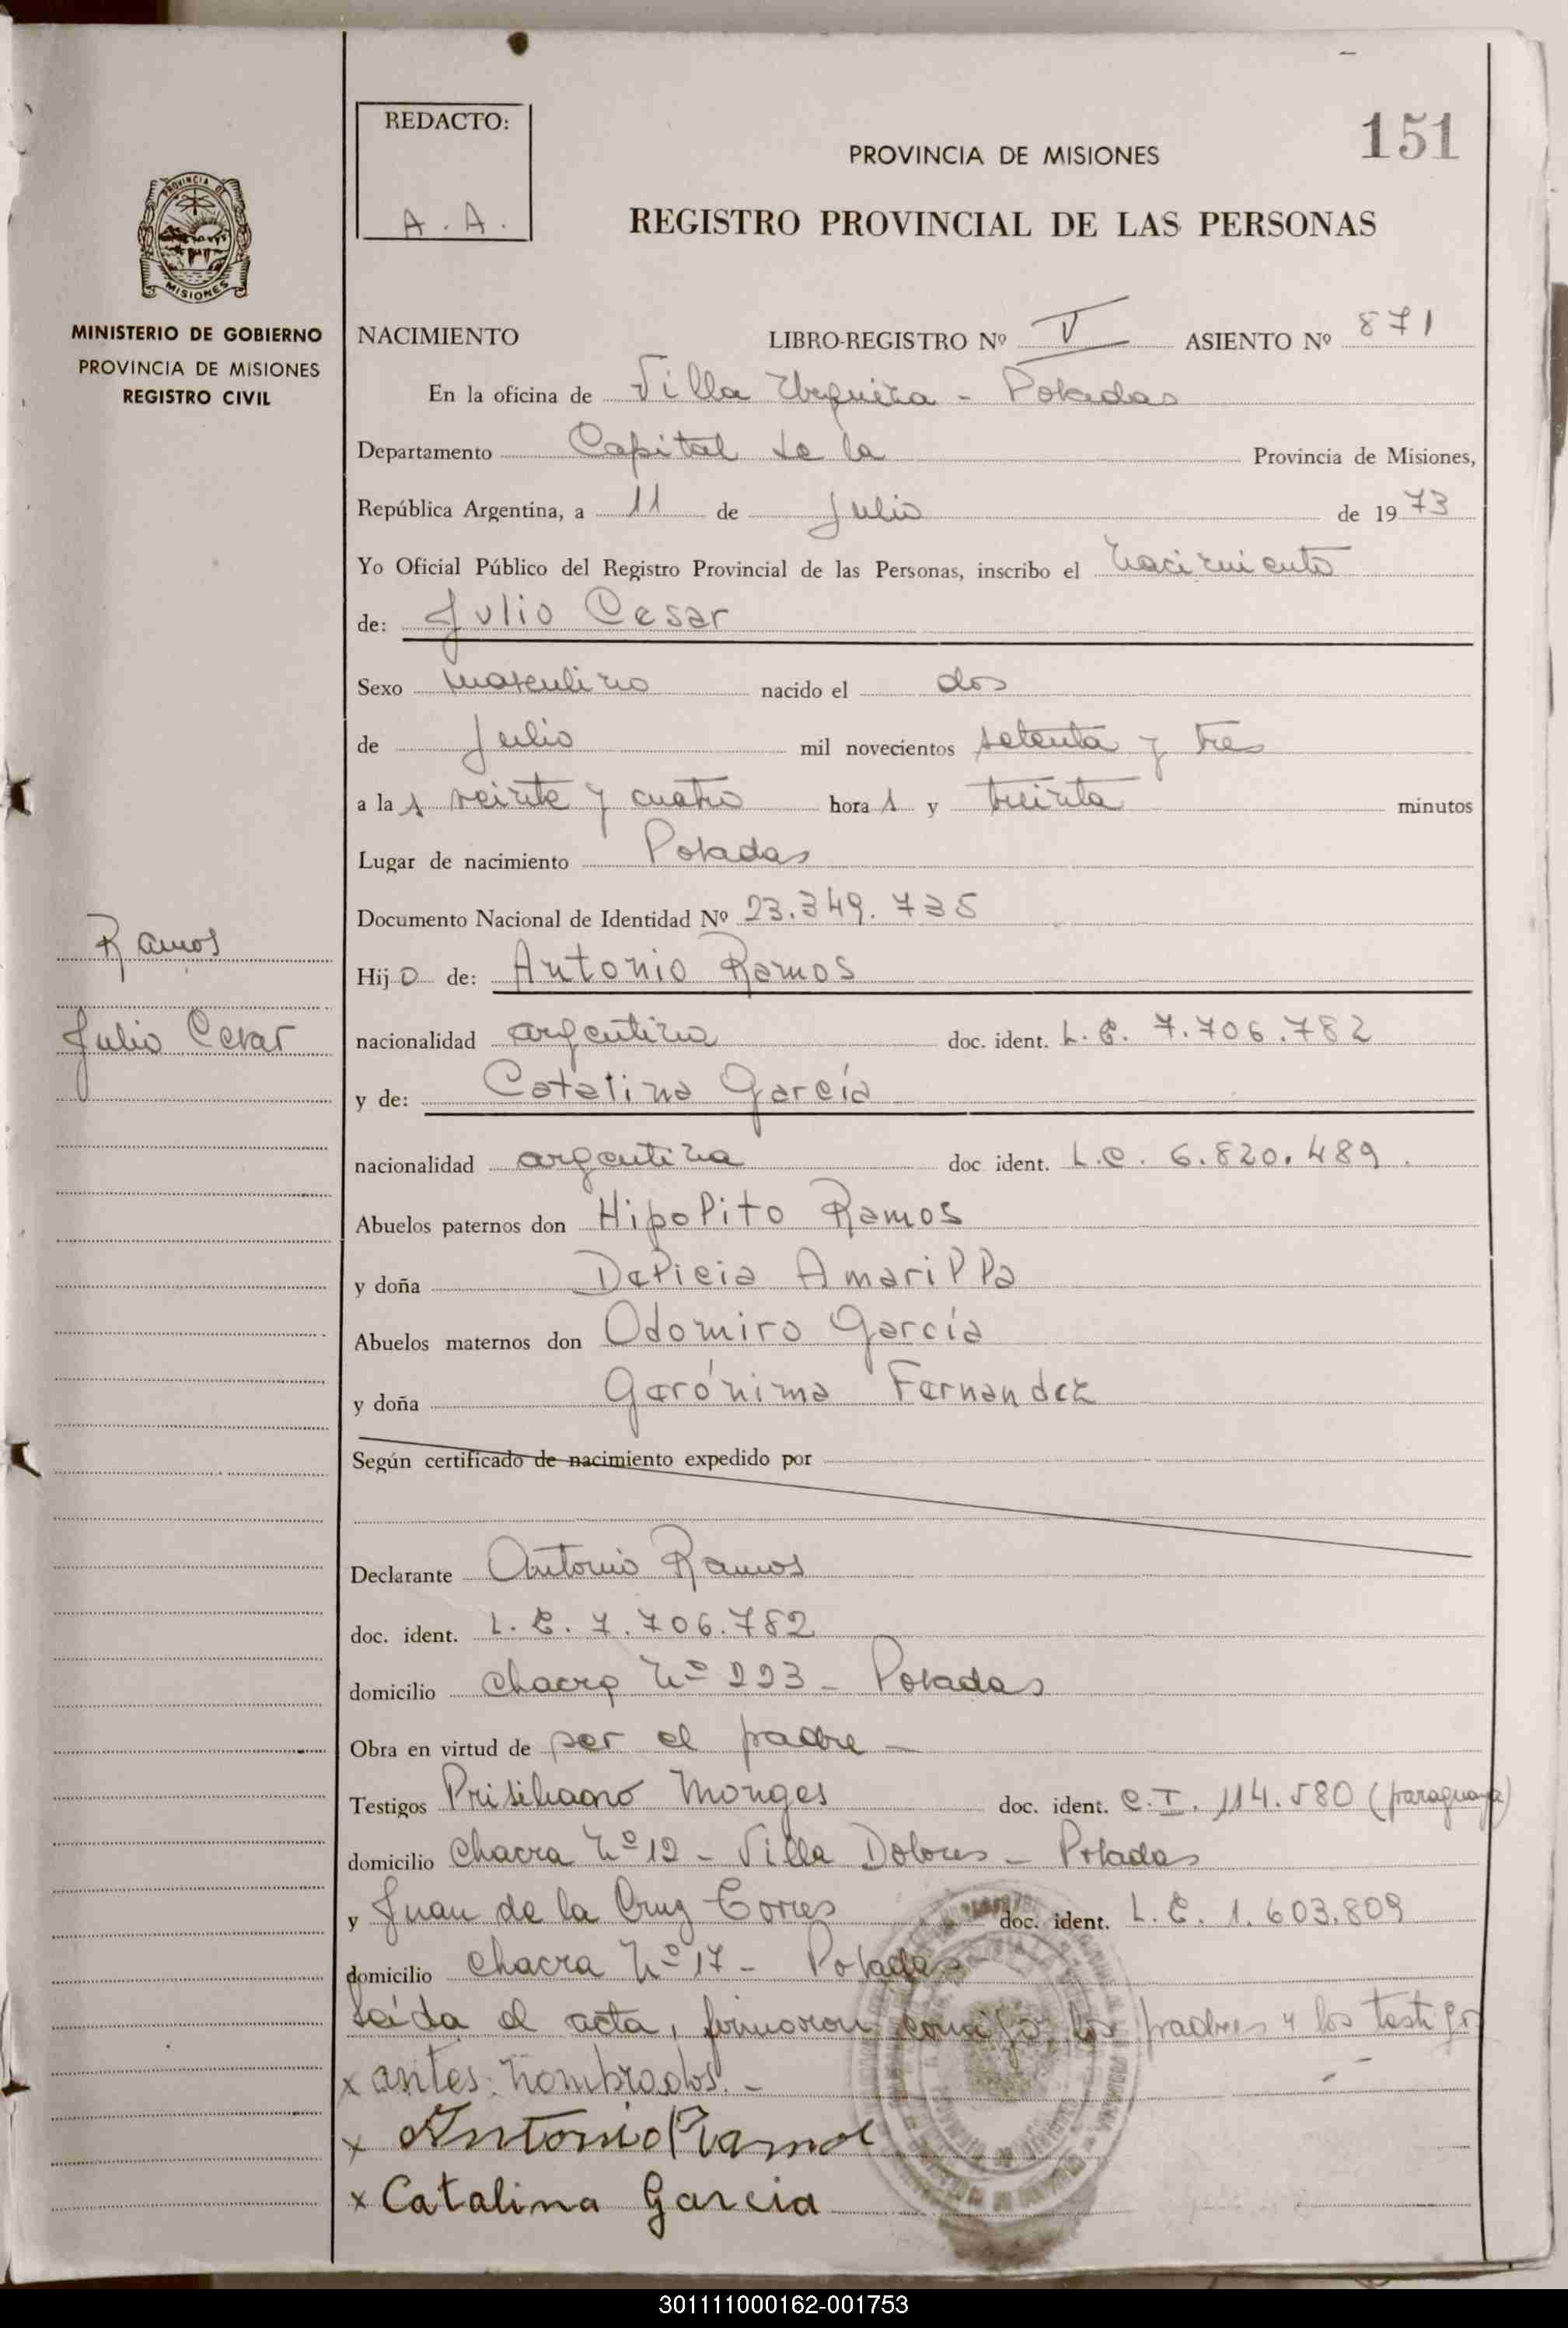 REDACTO:
A. A.
PROVINCIA DE MISIONES
151
REGISTRO PROVINCIAL DE LAS PERSONAS
PROVINCIA DE
MISIONES
MINISTERIO DE GOBIERNO
PROVINCIA DE MISIONES
REGISTRO CIVIL
NACIMIENTO LIBRO-REGISTRO Nº V ASIENTO Nº 871
En la oficina de Villa Urquiza - Posadas
Departamento Capital de la Provincia de Misiones,
República Argentina, a 11 de Julio de 1973
Yo Oficial Público del Registro Provincial de las Personas, inscribo el nacimiento
de: Julio Cesar
Sexo masculino nacido el dos
de Julio mil novecientos setenta y tres
a las veinte y cuatro horas y treinta minutos
Lugar de nacimiento Posadas
Documento Nacional de Identidad Nº 23.349.735
Ramos
Hijo de: Antonio Ramos
Julio Cesar
nacionalidad argentina doc. ident. L.E. 7.706.782
y de: Catalina García
nacionalidad argentina doc ident. L.C. 6.820.489.
Abuelos paternos don Hipolito Ramos
y doña Delicia Amarilla
Abuelos maternos don Odomiro García
y doña Gerónima Fernandez
Según certificado de nacimiento expedido por
Declarante Antonio Ramos
doc. ident. L.E. 7.706.782
domicilio chacra Nº 223 - Posadas
Obra en virtud de ser el padre -
Testigos Prisiliano Monges doc. ident. C.I. 114.580 (paraguaya)
domicilio Chacra Nº 12 - Villa Dolores - Posadas
y Juan de la Cruz Torres doc. ident. L.E. 1.603.809
domicilio Chacra Nº 17 - Posadas -
Leída el acta, firmaron conmigo, los padres y los testigos
x antes nombrados. -
x Antonio Ramos
x Catalina Garcia
301111000162-001753